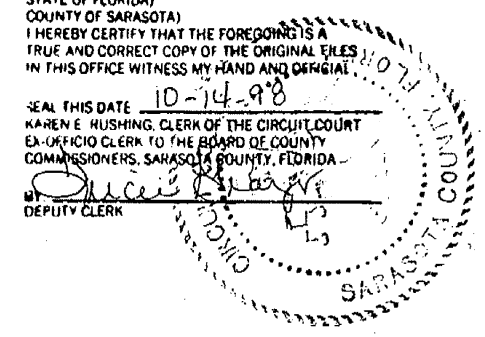 STATE OF FLORIDA)
COUNTY OF SARASOTA)
I HEREBY CERTIFY THAT THE FOREGOING IS A
TRUE AND CORRECT COPY OF THE ORIGINAL FILES
IN THIS OFFICE WITNESS MY HAND AND OFFICIAL
SEAL THIS DATE 10-14-98
KAREN E. RUSHING, CLERK OF THE CIRCUIT COURT
EX-OFFICIO CLERK TO THE BOARD OF COUNTY
COMMISSIONERS, SARASOTA COUNTY, FLORIDA
BY
DEPUTY CLERK
SARASOTA COUNTY FLOR
CIRCU